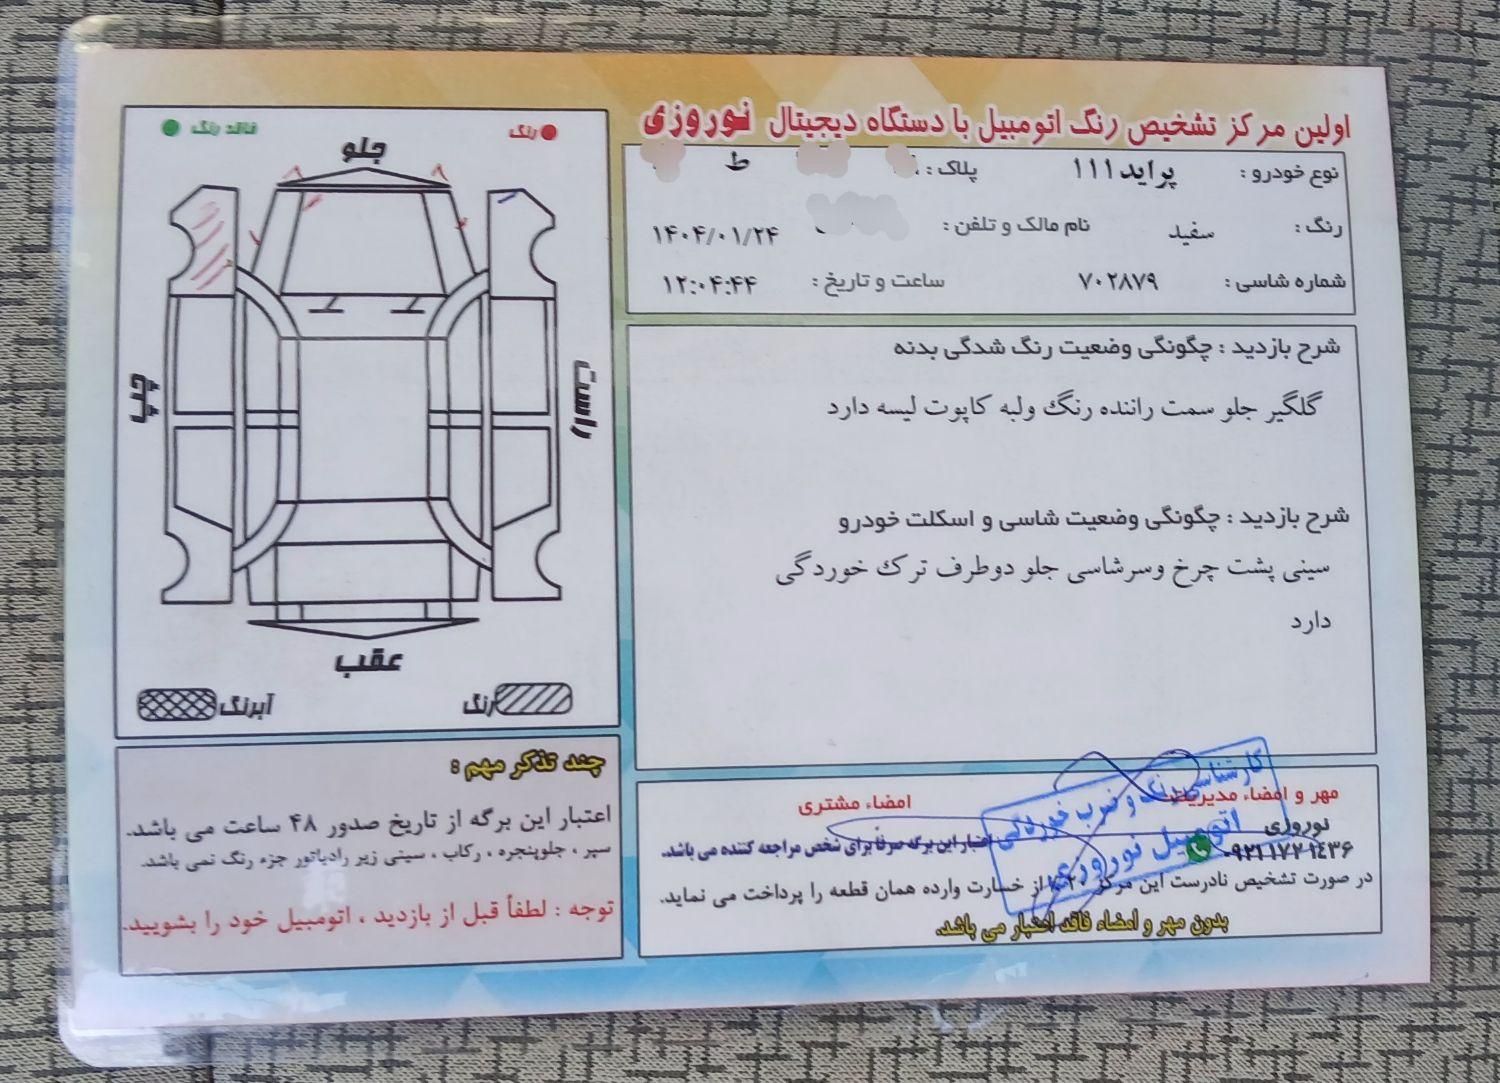 اولین مرکز تشخیص رنگ اتومبیل با دستگاه دیجیتال نوروزی
نوع خودرو : پراید ۱۱۱ پلاک : ط
رنگ : سفید نام مالک و تلفن : ۱۴۰۴/۰۱/۲۴
شماره شاسی : ۷۰۲۸۷۹ ساعت و تاریخ : ۱۲:۰۴:۴۴
شرح بازدید : چگونگی وضعیت رنگ شدگی بدنه
گلگیر جلو سمت راننده رنگ ولبه کاپوت لیسه دارد
شرح بازدید : چگونگی وضعیت شاسی و اسکلت خودرو
سینی پشت چرخ وسرشاسی جلو دوطرف ترک خوردگی
دارد
رنگ فاقد رنگ
جلو
راست
چپ
عقب
رنگ آبرنگ
چند تذکر مهم :
اعتبار این برگه از تاریخ صدور ۴۸ ساعت می باشد.
سپر ، جلوپنجره ، رکاب ، سینی زیر رادیاتور جزء رنگ نمی باشد.
توجه : لطفاً قبل از بازدید ، اتومبیل خود را بشویید.
مهر و امضاء مدیریت امضاء مشتری
نوروزی
۰۹۲۱۱۷۲۱۴۳۶
اعتبار این برگه صرفاً برای شخص مراجعه کننده می باشد.
در صورت تشخیص نادرست این مرکز ۲۰٪ از خسارت وارده همان قطعه را پرداخت می نماید.
بدون مهر و امضاء فاقد اعتبار می باشد.
کارشناسی رنگ و ضرب خوردگی
اتومبیل نوروزی